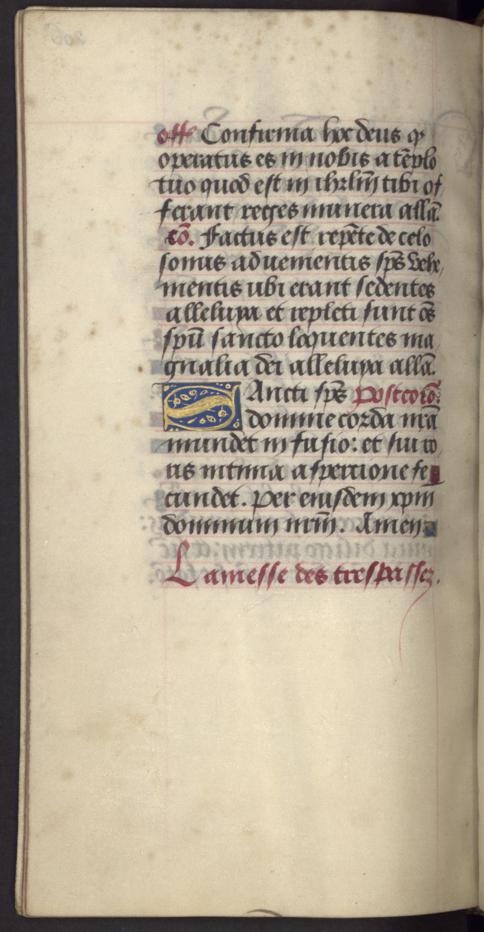 offe Confirma hoc deus qͥ
operatus es in nobis a tēplo
tuo quod est in ihrlm̄ tibi of
ferant reges munera allā.
cō. Factus est repēte de celo
sonus aduenientis sp̄s vehe
mentis ubi erant sedentes
alleluya et repleti sunt oēs
spū sancto loquentes ma
gnalia dei alleluya allā.
SAncti sp̄s postcoīō.
domine corda nrā
mundet infusio: et sui ro
ris intima aspercione fe
cundet. Per eiusdem xpm
dominum nrm̄. Amen
La messe des trespassez.